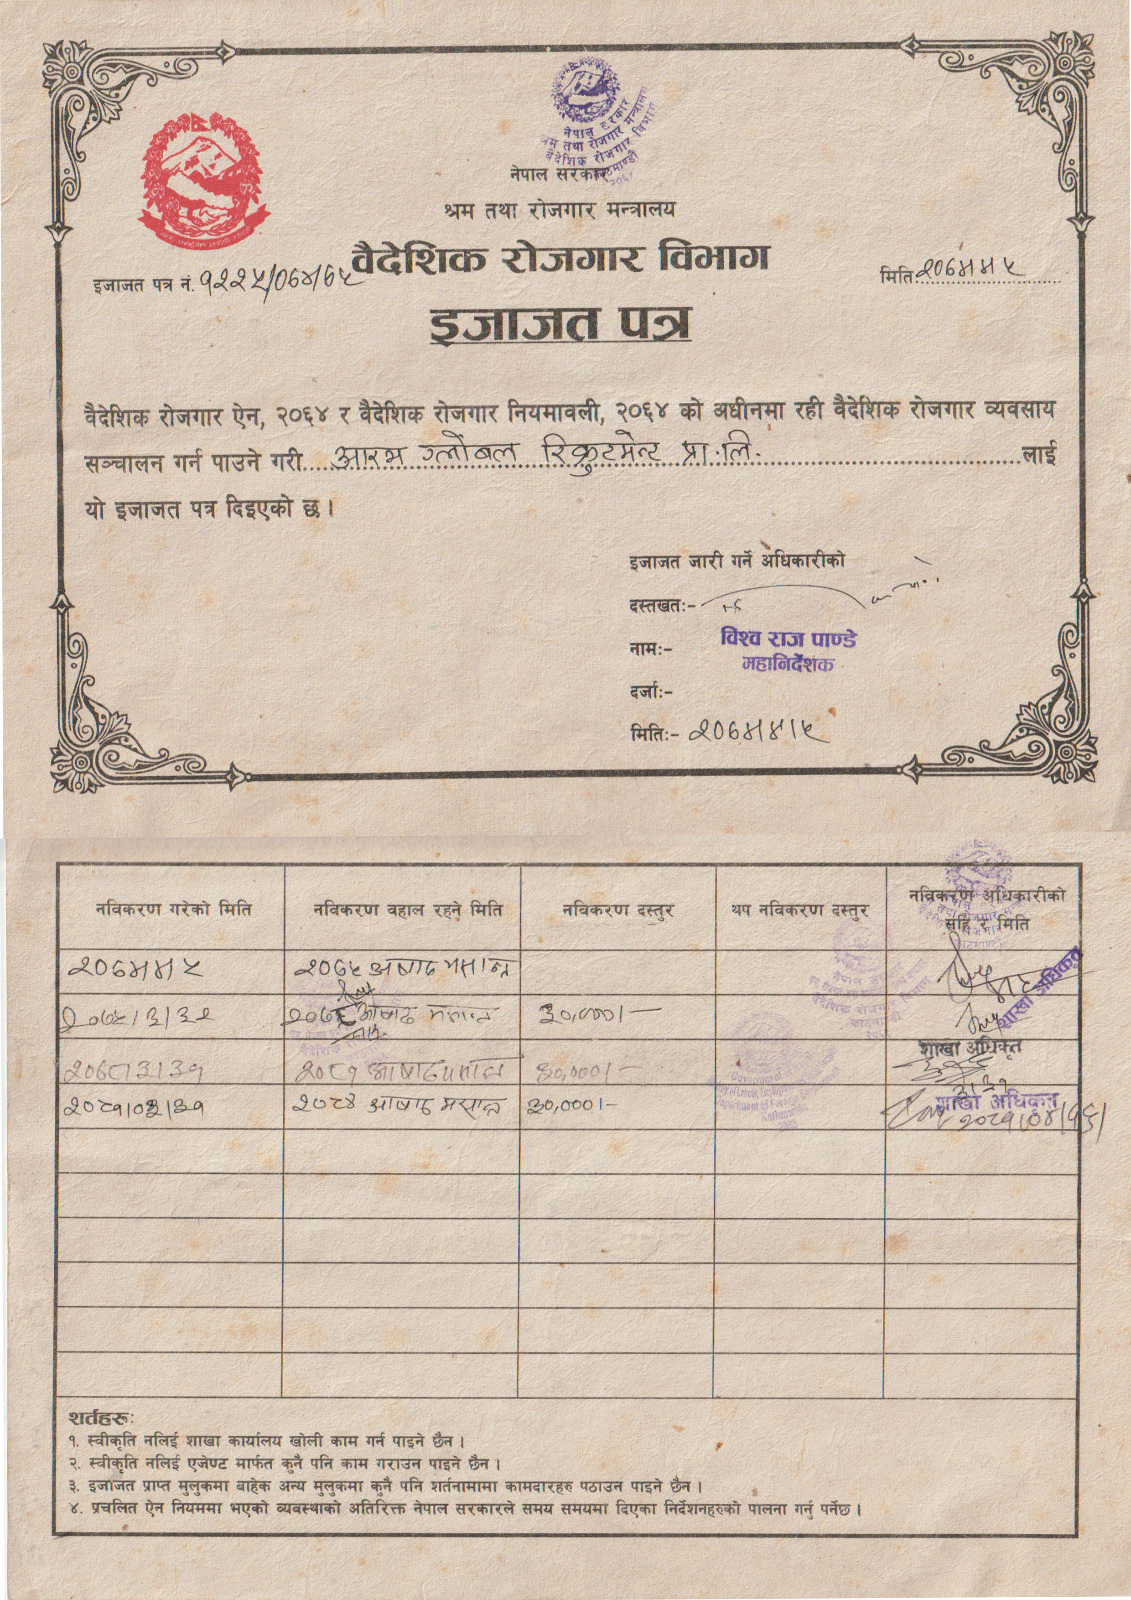 नेपाल सरकार
श्रम तथा रोजगार मन्त्रालय
वैदेशिक रोजगार विभाग
काठमाण्डौ
नेपाल सरकार
श्रम तथा रोजगार मन्त्रालय
वैदेशिक रोजगार विभाग
इजाजत पत्र नं. १२२५/०७४/७५
मिति
इजाजत पत्र
वैदेशिक रोजगार ऐन, २०६४ र वैदेशिक रोजगार नियमावली, २०६४ को अधीनमा रही वैदेशिक रोजगार व्यवसाय
सञ्चालन गर्न पाउने गरी ग्लोबल रिक्रुटमेन्ट प्रा.लि. लाई
यो इजाजत पत्र दिइएको छ ।
इजाजत जारी गर्ने अधिकारीको
दस्तखतः-
नामः- विश्व राज पाण्डे
महानिर्देशक
दर्जाः-
मितिः-
नविकरण गरेको मिति नविकरण वहाल रहने मिति नविकरण दस्तुर थप नविकरण दस्तुर नविकरण अधिकारीको
सहि र मिति
२०७५ अषाढ मसान्त
शाखा अधिकृत
२०७५।३।३२ अषाढ मसान्त ३०,०००।-
शाखा अधिकृत
२०७८।३।३१ २०८१ अषाढ मसान्त ३०,०००।-
२०८१।०३।३१ २०८४ अषाढ मसान्त ३०,०००।-
शाखा अधिकृत
२०८१।०४।१६।
शर्तहरुः
१. स्वीकृति नलिई शाखा कार्यालय खोली काम गर्न पाइने छैन ।
२. स्वीकृति नलिई एजेण्ट मार्फत कुनै पनि काम गराउन पाइने छैन ।
३. इजाजत प्राप्त मुलुकमा बाहेक अन्य मुलुकमा कुनै पनि शर्तनामामा कामदारहरु पठाउन पाइने छैन ।
४. प्रचलित ऐन नियममा भएको व्यवस्थाको अतिरिक्त नेपाल सरकारले समय समयमा दिएका निर्देशनहरुको पालना गर्नु पर्नेछ ।